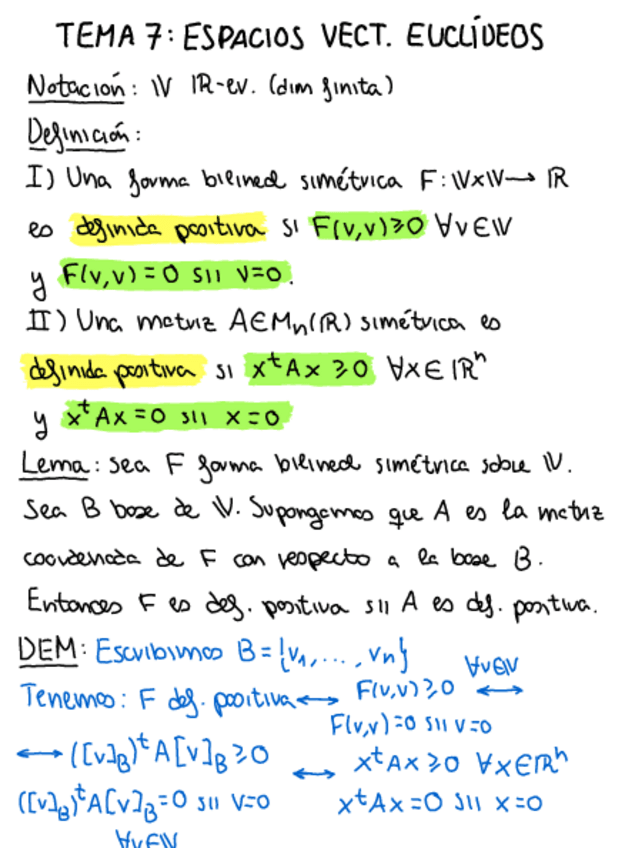 TEMA 7: ESPACIOS VECT. EUCLÍDEOS
Notación: V ℝ-ev. (dim finita)
Definición:
I) Una forma bilineal simétrica F: V×V → ℝ
es definida positiva si F(v,v) ≥ 0 ∀v∈V
y F(v,v) = 0 sii v=0.
II) Una matriz A∈Mₙ(ℝ) simétrica es
definida positiva si xᵗAx ≥ 0 ∀x∈ℝⁿ
y xᵗAx = 0 sii x=0
Lema: Sea F forma bilineal simétrica sobre V.
Sea B base de V. Supongamos que A es la matriz
coordenada de F con respecto a la base B.
Entonces F es def. positiva sii A es def. positiva.
DEM: Escribimos B = {v₁, ..., vₙ}
Tenemos: F def. positiva ⟷ F(v,v) ≥ 0 ∀v∈V ⟷
F(v,v)=0 sii v=0
⟷ ([v]_B)ᵗA[v]_B ≥ 0 ⟷ xᵗAx ≥ 0 ∀x∈ℝⁿ
([v]_B)ᵗA[v]_B = 0 sii v=0 xᵗAx = 0 sii x=0
∀v∈V